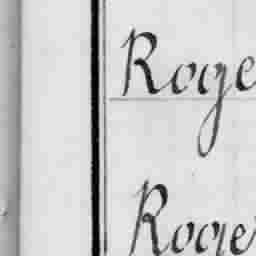 Roge
Roger